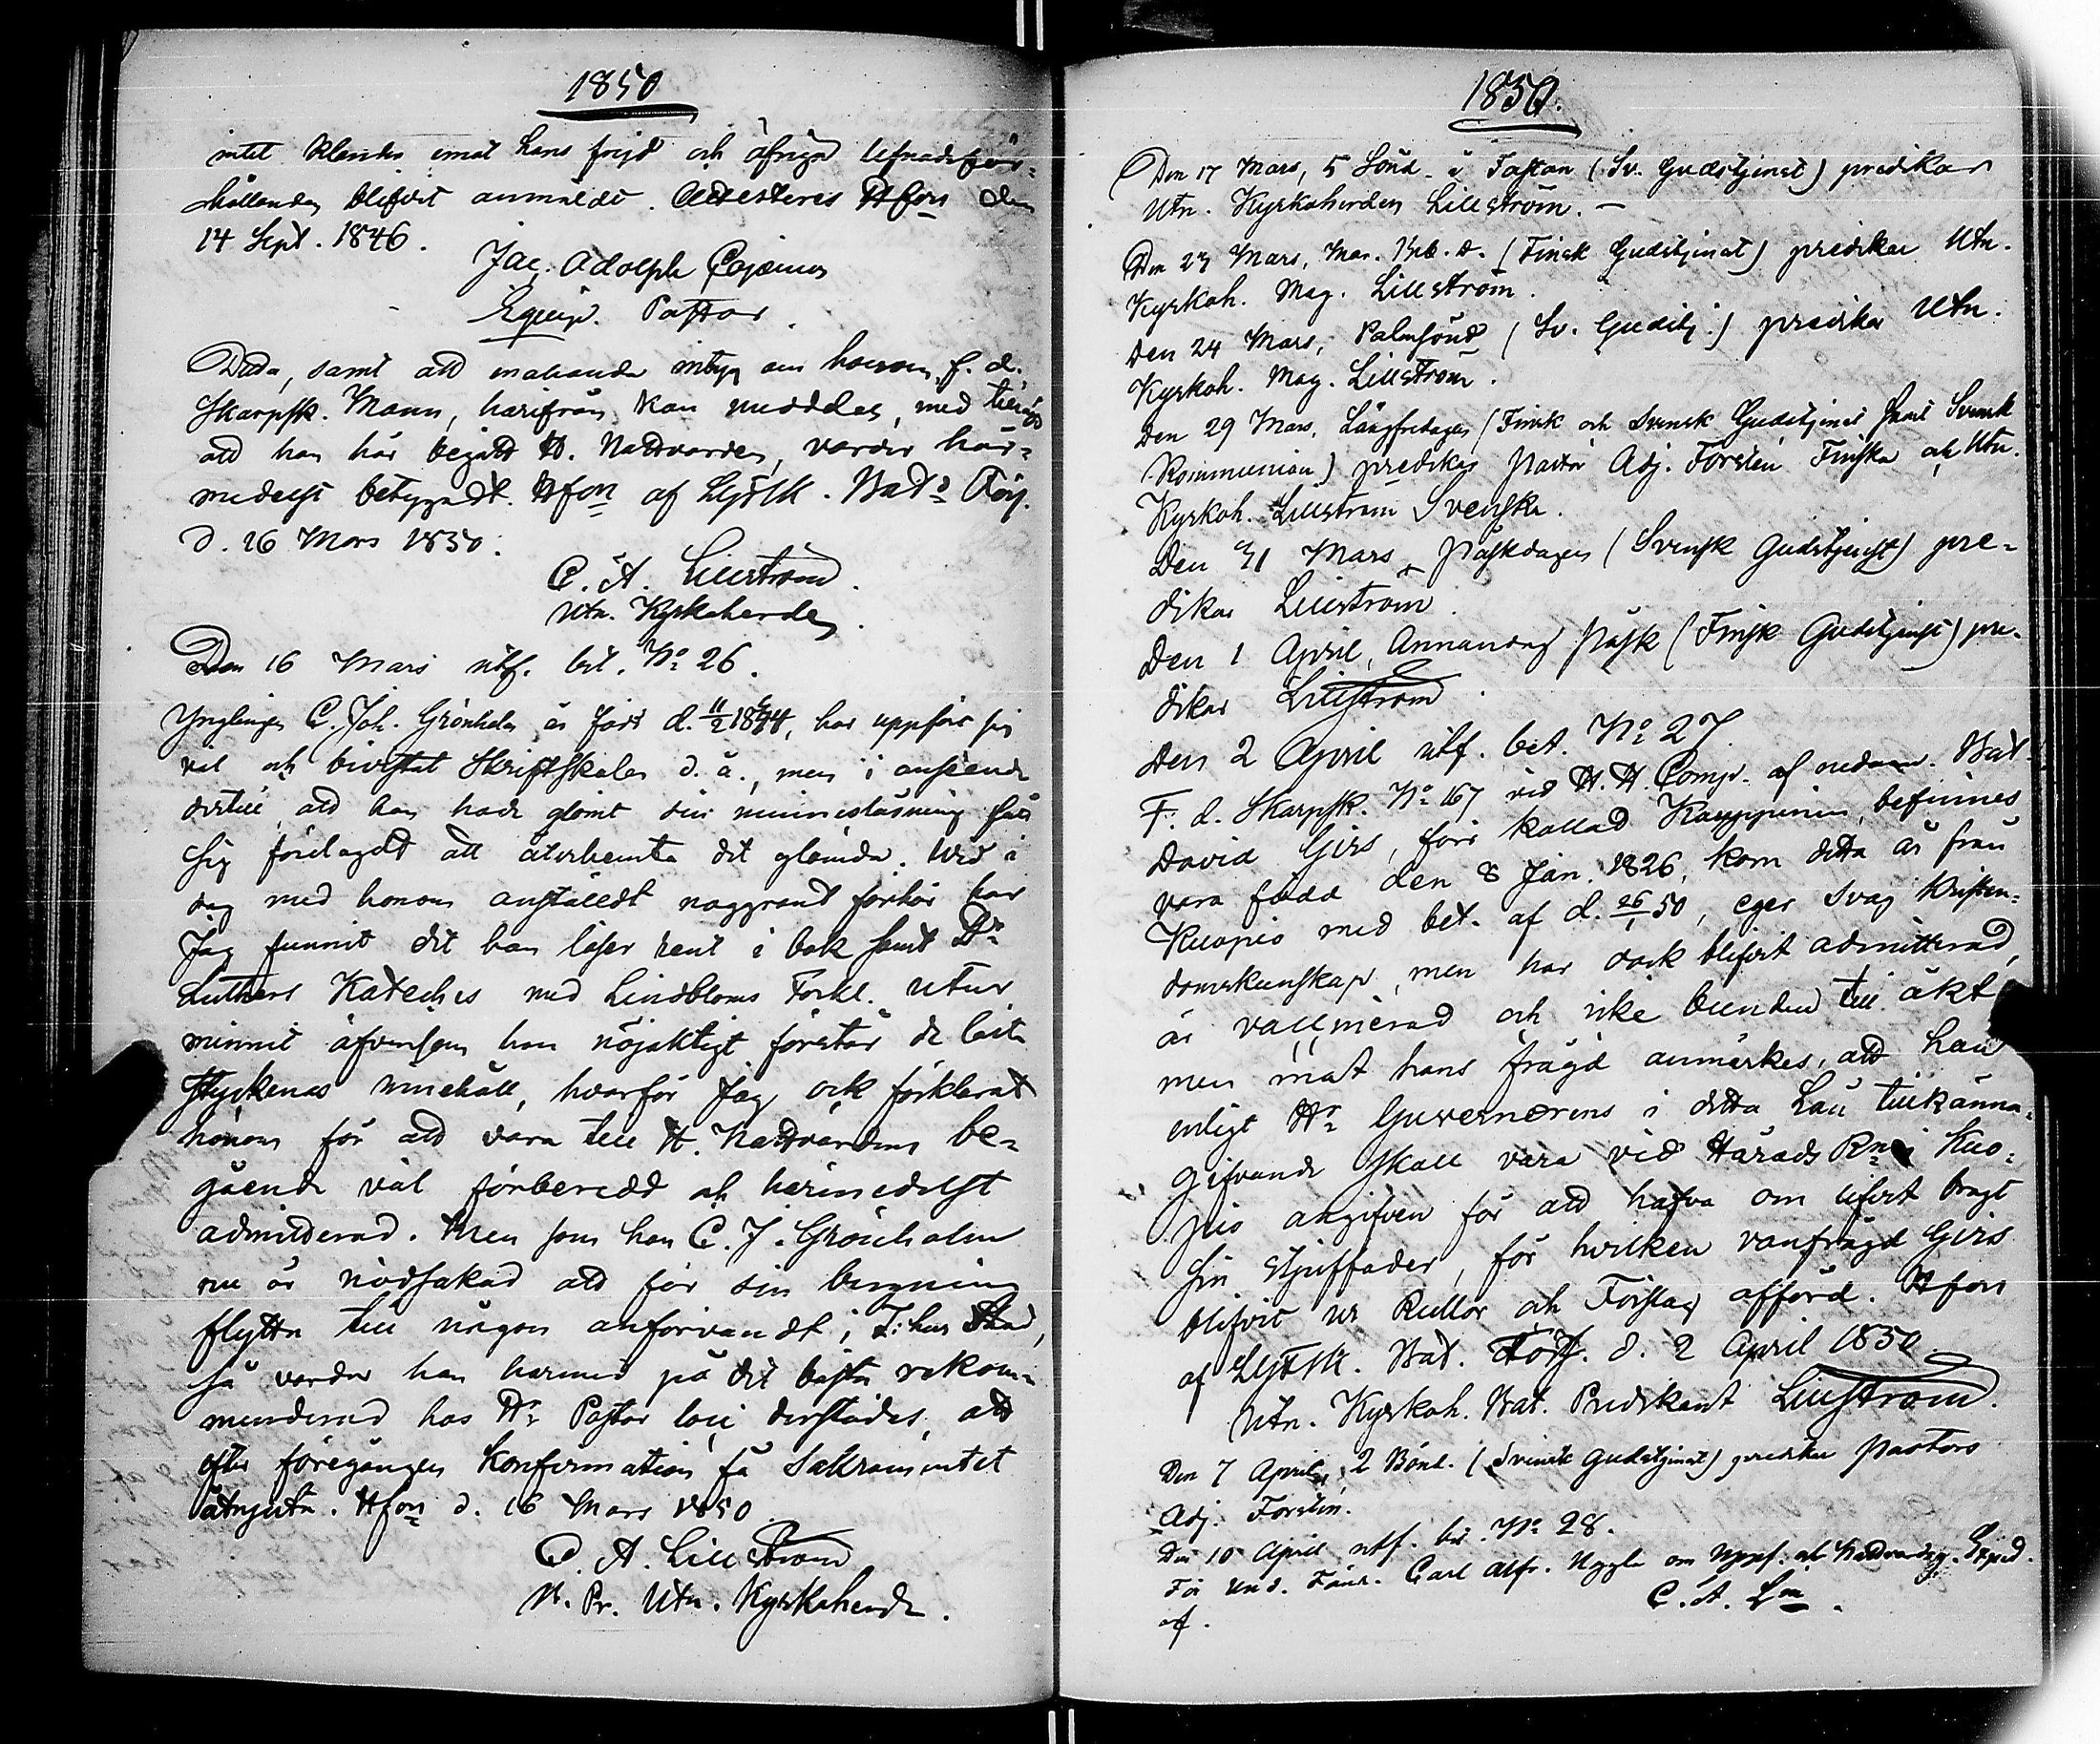 1850
intet klander emot hans frejd och öfriga lefnadsför-
hållanden blifvit anmäldt. Attesteras H:fors den
14 Sept. 1846.
Jac. Adolph Cajanus
Equip. Pastor.
Detta, samt att enahanda intyg om honom, f. d.
Skarpsk. Mann, härifrån kan meddelas, med tillägg
att han här begått H. Nattvarden, varder här-
medelst betygadt. H:fors af LifGSk. Bat:s Förs.
d. 16 Mars 1850.
C. A. Lillström
Utn. Kyrkoherde.
Den 16 Mars utf. bet. N:o 26.
Ynglingen C. Joh. Grönholm är född d. 11/2 18, har uppfört sig
väl och bivistat Skriftskolan d. å., men i anseende
dertill, att han hade glömt sin minnesläsning
sig förelagdt att återhemta det glömda. Wid i
dag med honom anstäldt noggrant förhör har
Jag funnit det han läser rent i bok samt D:r
Luthers Kateches med Lindbloms Förkl. utur
minnet äfvensom han nöjaktigt förstår de läste
styckenas innehåll, hvarför Jag ock förklarat
honom för att vara till H. Nattvardens be-
gående väl förberedd och härmedelst
admitterad. Men som han C. J. Grönholm
nu är nödsakad att för sin bergning
flytta till någon anförvandt i T:hus Stad,
så varder han härmed på det bästa rekom-
menderad hos H:r Pastor loci derstädes, att
efter föregången konfirmation få Sakramentet
åtnjuta. H:fors d. 16 Mars 1850
C. A. Lillström
B. Pr. Utn. Kyrkoherde.
1850.
Den 17 Mars, 5 Sönd. i Fastan (Sv. Gudstjenst) predikar
Utn. Kyrkoherden Lillström. –
Den 23 Mars, Mar. Beb. D. (Finsk Gudstjenst) predikar Utn.
Kyrkoh. Mag. Lillström.
Den 24 Mars, Palmsönd (Sv. Gudstj.) predikar Utn.
Kyrkoh. Mag. Lillström.
Den 29 Mars, Långfredagen (Finsk och Svensk Gudstjenst samt Svensk
Kommunion) predikar Pastor Adj. Forstén Finska och Utn.
Kyrkoh. Lillström Svenska.
Den 31 Mars, Påskdagen (Svensk Gudstjenst) pre-
dikar Lillström.
Den 1 April, Annandag Påsk (Finsk Gudstjenst) pre-
dikar Lillström
Den 2 April utf. bet. N:o 27.
F. d. Skarpsk. N:o 167 vid H. H. Comp. af nedann. Bat.
David Girs, förr kallad Kauppinen, befinnes
vara född den 8 Jan. 1826, kom detta år från
Kuopio med bet. af d. 26/1 50, eger svag kristen-
domskunskap, men har dock blifvit admitterad,
är vaccinerad och icke bunden till äkt.,
men mot hans frägd anmärkes, att han
enligt H:r Guvernörens i detta Län tillkänna-
gifvande skall vara vid Härads R:n i Kuo-
pio angifven för att hafva om lifvet bragt
sin styffader, för hvilken vanfrägd Girs
blifvit ur Rullor och Förslag afförd. H:fors
af LifGSk. Bat. Förs. d. 2 April 1850.
Utn. Kyrkoh. Bat. Predikant Lillström.
Den 7 April, 2 Bönd. (Svensk Gudstjenst) predikar Pastors
Adj. Forstén.
Den 10 April utf. bet. N:o 28.
För Und. Fänr. Carl Alfr. Uggla om Uppf. och Nattvardsg. Exped.
af.
C. A. L:m.